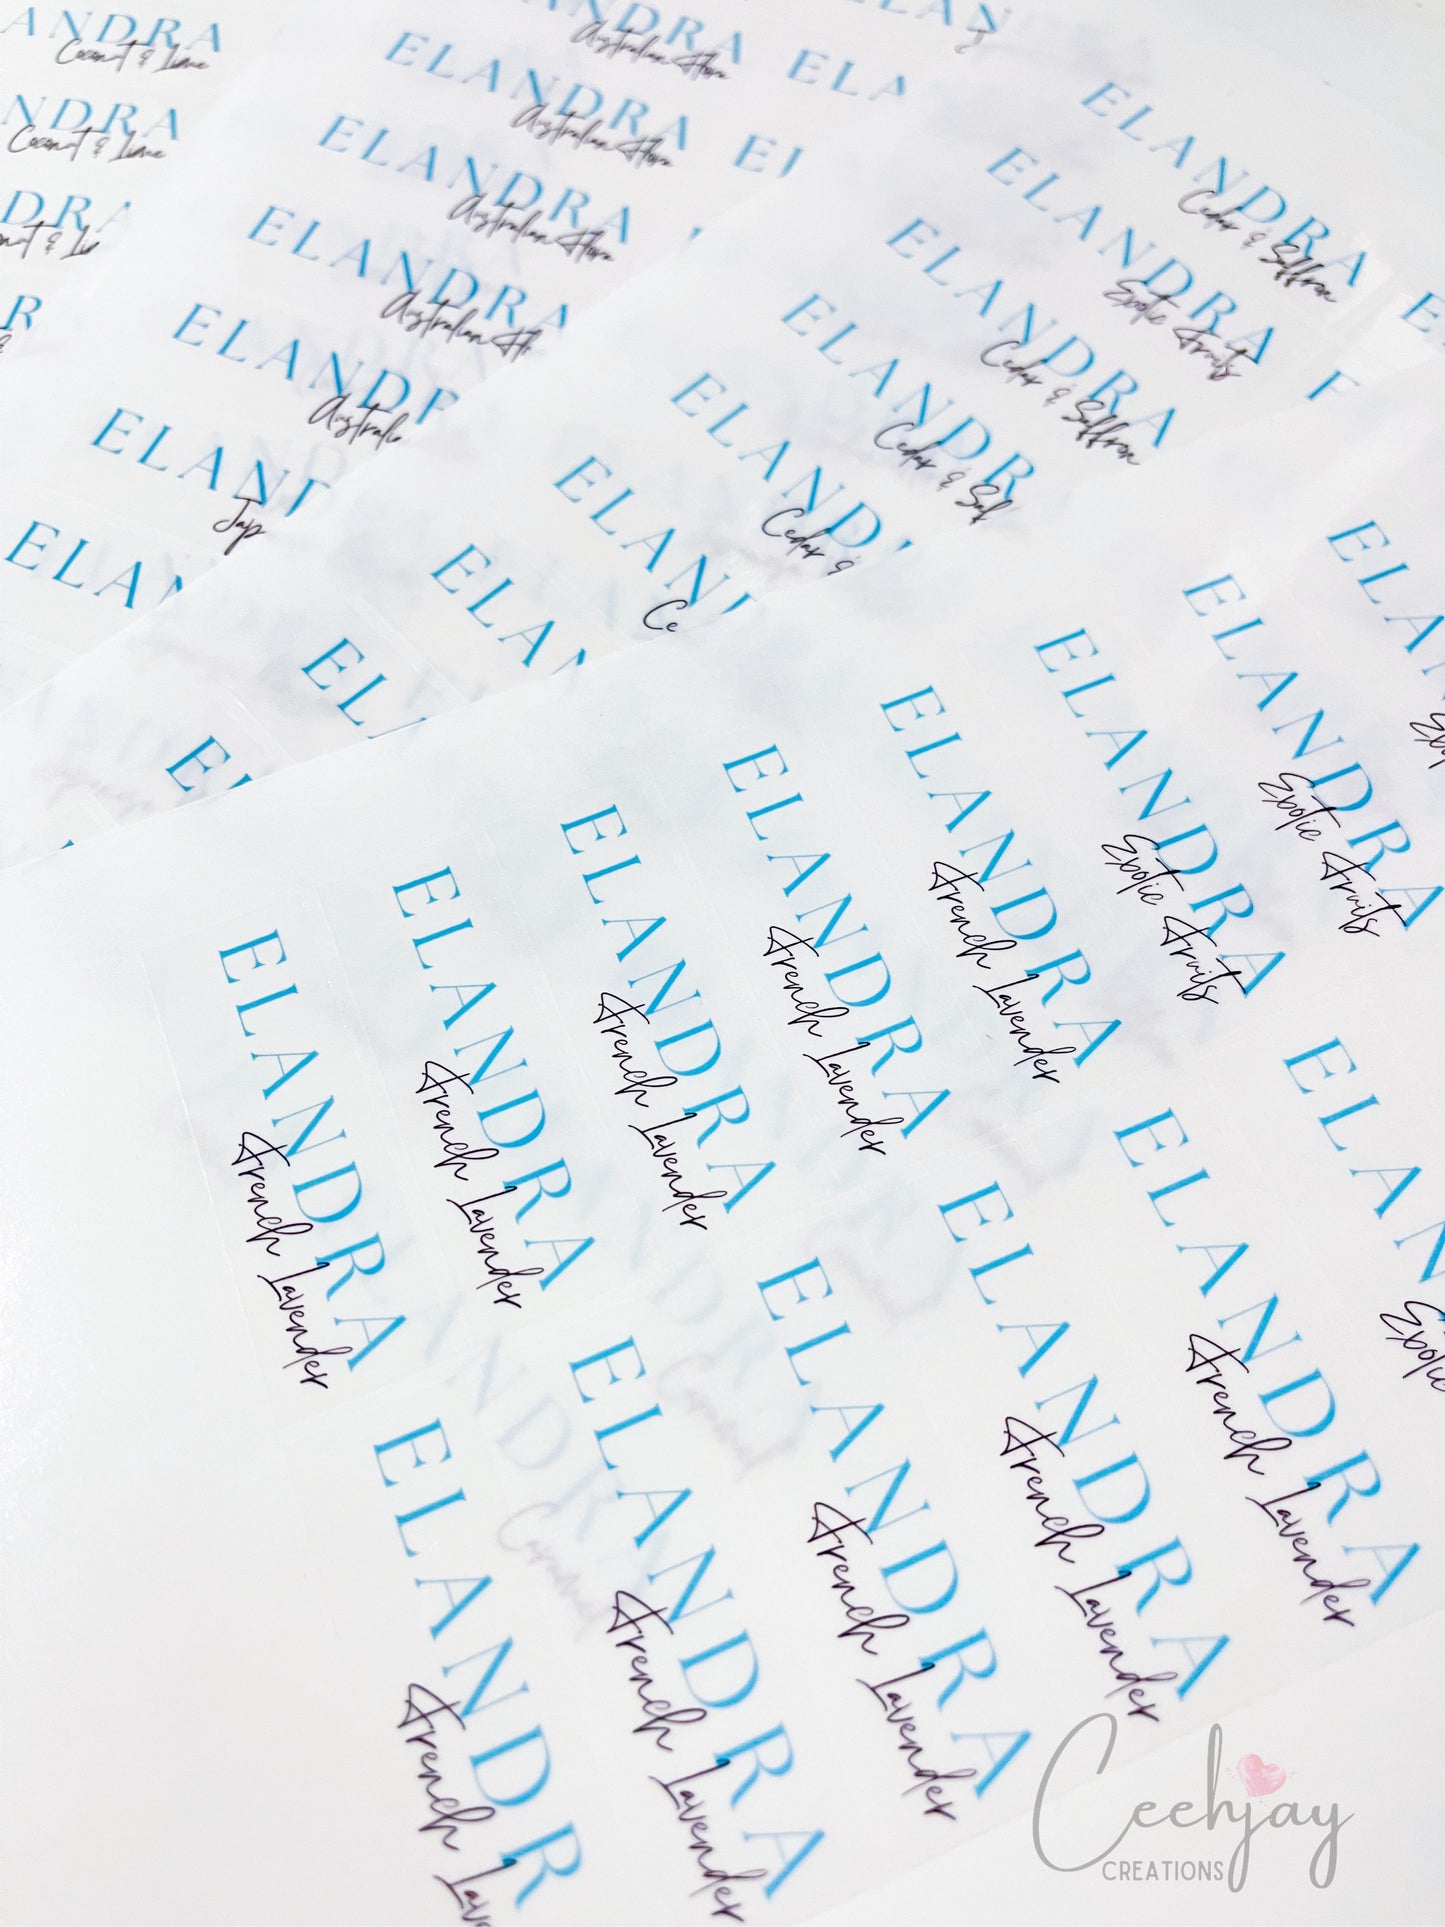 ANDRA
Coconut & Lime
NDRA
Coconut & Lime
DRA
R
NDRA
Australian Flora
ELANDRA
Australian Flora
ELANDRA
Australian Flora
ELANDRA
Australian
ELANDR
ELAND
Jap
ELAN
ELAN
ELA
EL
ELANDRA
Cedar & Saffron
ELANDRA
Exotic Fruits
ELANDRA
Cedar & Saffron
ELANDR
Cedar & Saf
ELAND
Cedar &
ELAN
Ce
ELAN
EL
E
ELA
ELANDRA
Exotic Fruits
ELANDRA
Exotic Fruits
ELANDRA
French Lavender
ELANDRA
French Lavender
ELANDRA
French Lavender
ELANDRA
French Lavender
ELANDRA
French Lavender
ELAN
Exotic
ELANDRA
French Lavender
ELANDRA
French Lavender
ELANDRA
French Lavender
ELANDRA
French Lavender
ELANDR
French Lav
Ceehjay
CREATIONS